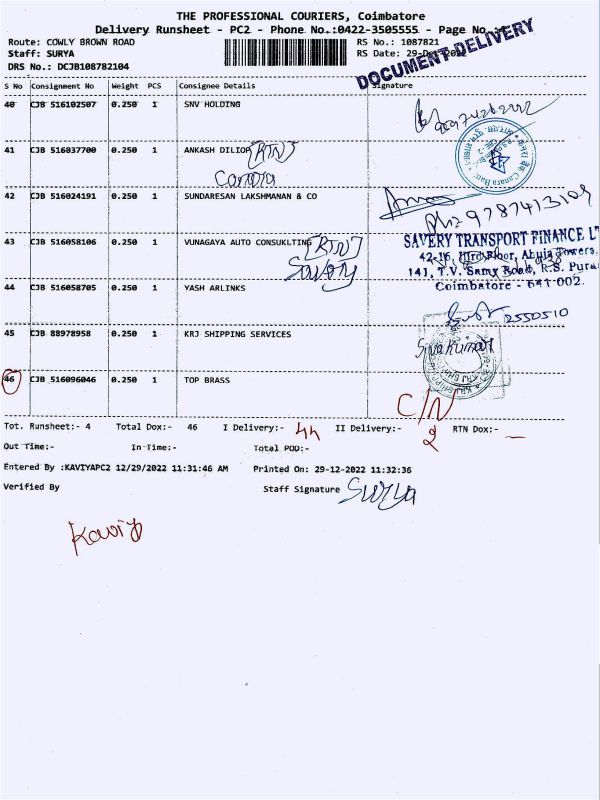 THE PROFESSIONAL COURIERS, Coimbatore
Delivery Runsheet - PC2 - Phone No.:0422-3505555 - Page No.:
Route: COWLY BROWN ROAD
Staff: SURYA
DRS No.: DCJB108782104
RS No.: 1087821
RS Date: 29-Dec-2022
DOCUMENT DELIVERY
S No Consignment No Weight PCS Consignee Details Signature
40 CJB 516102507 0.250 1 SNV HOLDING
41 CJB 516037700 0.250 1 ANKASH DILIOR (RTN)
Canara
Canara Bank
42 CJB 516024191 0.250 1 SUNDARESAN LAKSHMANAN & CO
Ph: 9787413109
43 CJB 516058106 0.250 1 VUNAGAYA AUTO CONSUKLTING (RTN)
Savery
SAVERY TRANSPORT FINANCE LT
42-16, IIIrd Floor, Abuja Towers,
141, T.V. Samy Road, R.S. Pura
Coimbatore - 641 002.
44 CJB 516058705 0.250 1 YASH ARLINKS
2550510
45 CJB 88978958 0.250 1 KRJ SHIPPING SERVICES
Sivakumar
46 CJB 516096046 0.250 1 TOP BRASS
C/N
Tot. Runsheet:- 4 Total Dox:- 46 I Delivery:- 44 II Delivery:- 2 RTN Dox:- —
Out Time:- In Time:- Total POD:-
Entered By :KAVIYAPC2 12/29/2022 11:31:46 AM Printed On: 29-12-2022 11:32:36
Verified By Staff Signature Surya
Kaviya